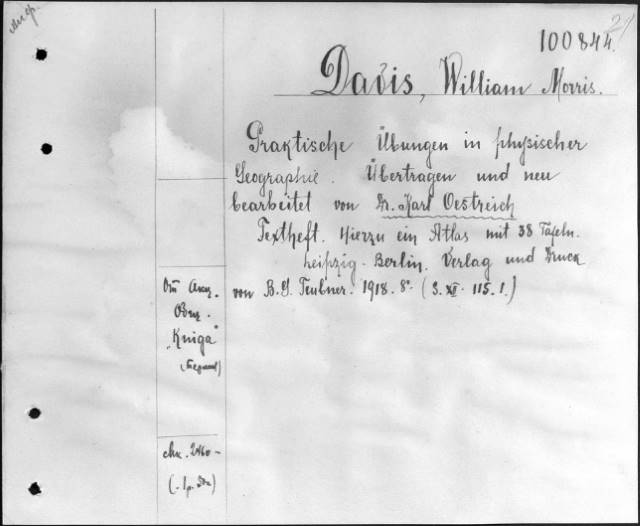 100844.
Davis, William Morris.
Praktische Übungen in physischer
Geographie. Übertragen und neu
bearbeitet von Dr. Karl Oestreich
Textheft. Hierzu ein Atlas mit 38 Tafeln.
Leipzig. Berlin. Verlag und Druck
von B. G. Teubner. 1918. 8° (S. XII. 115. 1.)
„Kniga"